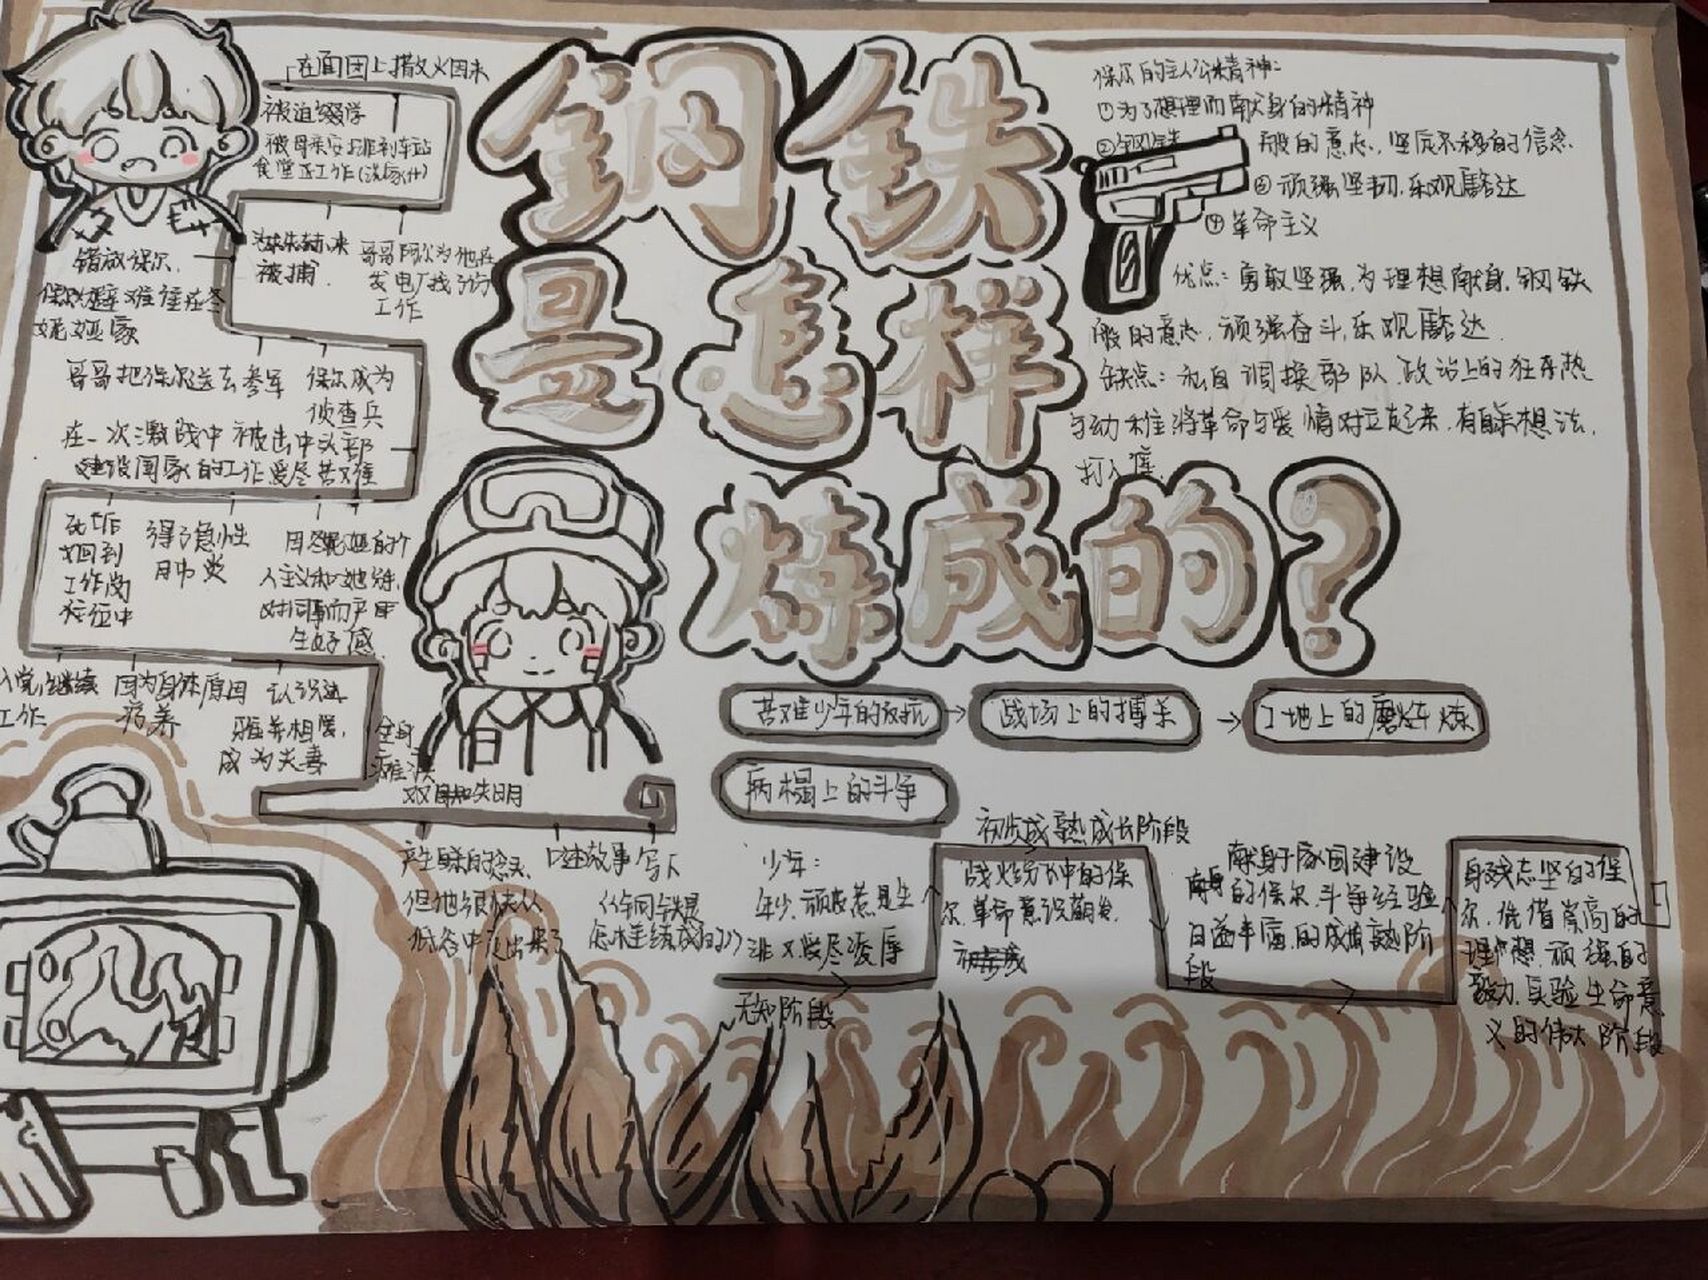 钢铁
是怎样
炼成的?
在面团上撒
被迫辍学
被母亲安排到车站
食堂工作(洗家什)
被捕
哥哥阿尔为他在
发电厂找了
工作
错放保尔
保尔避难
哥哥把保尔送去参军
保尔成为
侦查兵
在一次激战中被击中头部
建设国家的工作受尽苦难
回到
工作岗
位中
得了急性
因冬妮娅的个
人主义和她分
生好感
入党继续
工作
因为身体原因
疗养
认识达
雅并相爱,
成为夫妻
全身
瘫
双目失明
产生自杀的念头,
但他很快从
低谷中走出来了
口述故事
写下
《钢铁是
怎样炼成的》
保尔的主人公精神:
①为了理想而献身的精神
②钢铁 般的意志,坚定不移的信念
③顽强坚韧,乐观豁达
④革命主义
优点:勇敢坚强,为理想献身,钢铁
般的意志,顽强奋斗,乐观豁达
缺点:私自调换部队,政治上的狂热
与幼稚将革命与爱情对立起来,有自杀想法,
打人
苦难少年的反抗→战场上的搏杀→工地上的磨炼
病榻上的斗争
少年:
年少,顽皮惹是生
非又受尽凌辱
无知阶段
初步成熟成长阶段
战火纷飞中的保
尔,革命意识萌发
献身于家国建设
的保尔,斗争经验
日益丰富的成熟阶
段
身残志坚的保
尔,凭借崇高的
理想,顽强的
毅力,实验生命意
义的伟大阶段